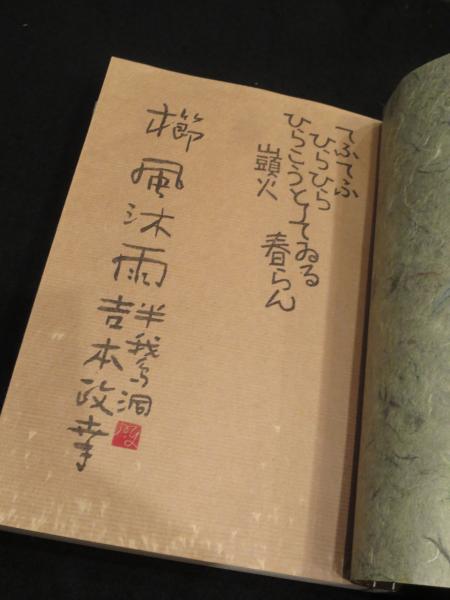 てふてふ
ひらひら
ひらこうとしてゐる
山頭火　春らん
櫛風沐雨
半鵞洞
吉本政幸